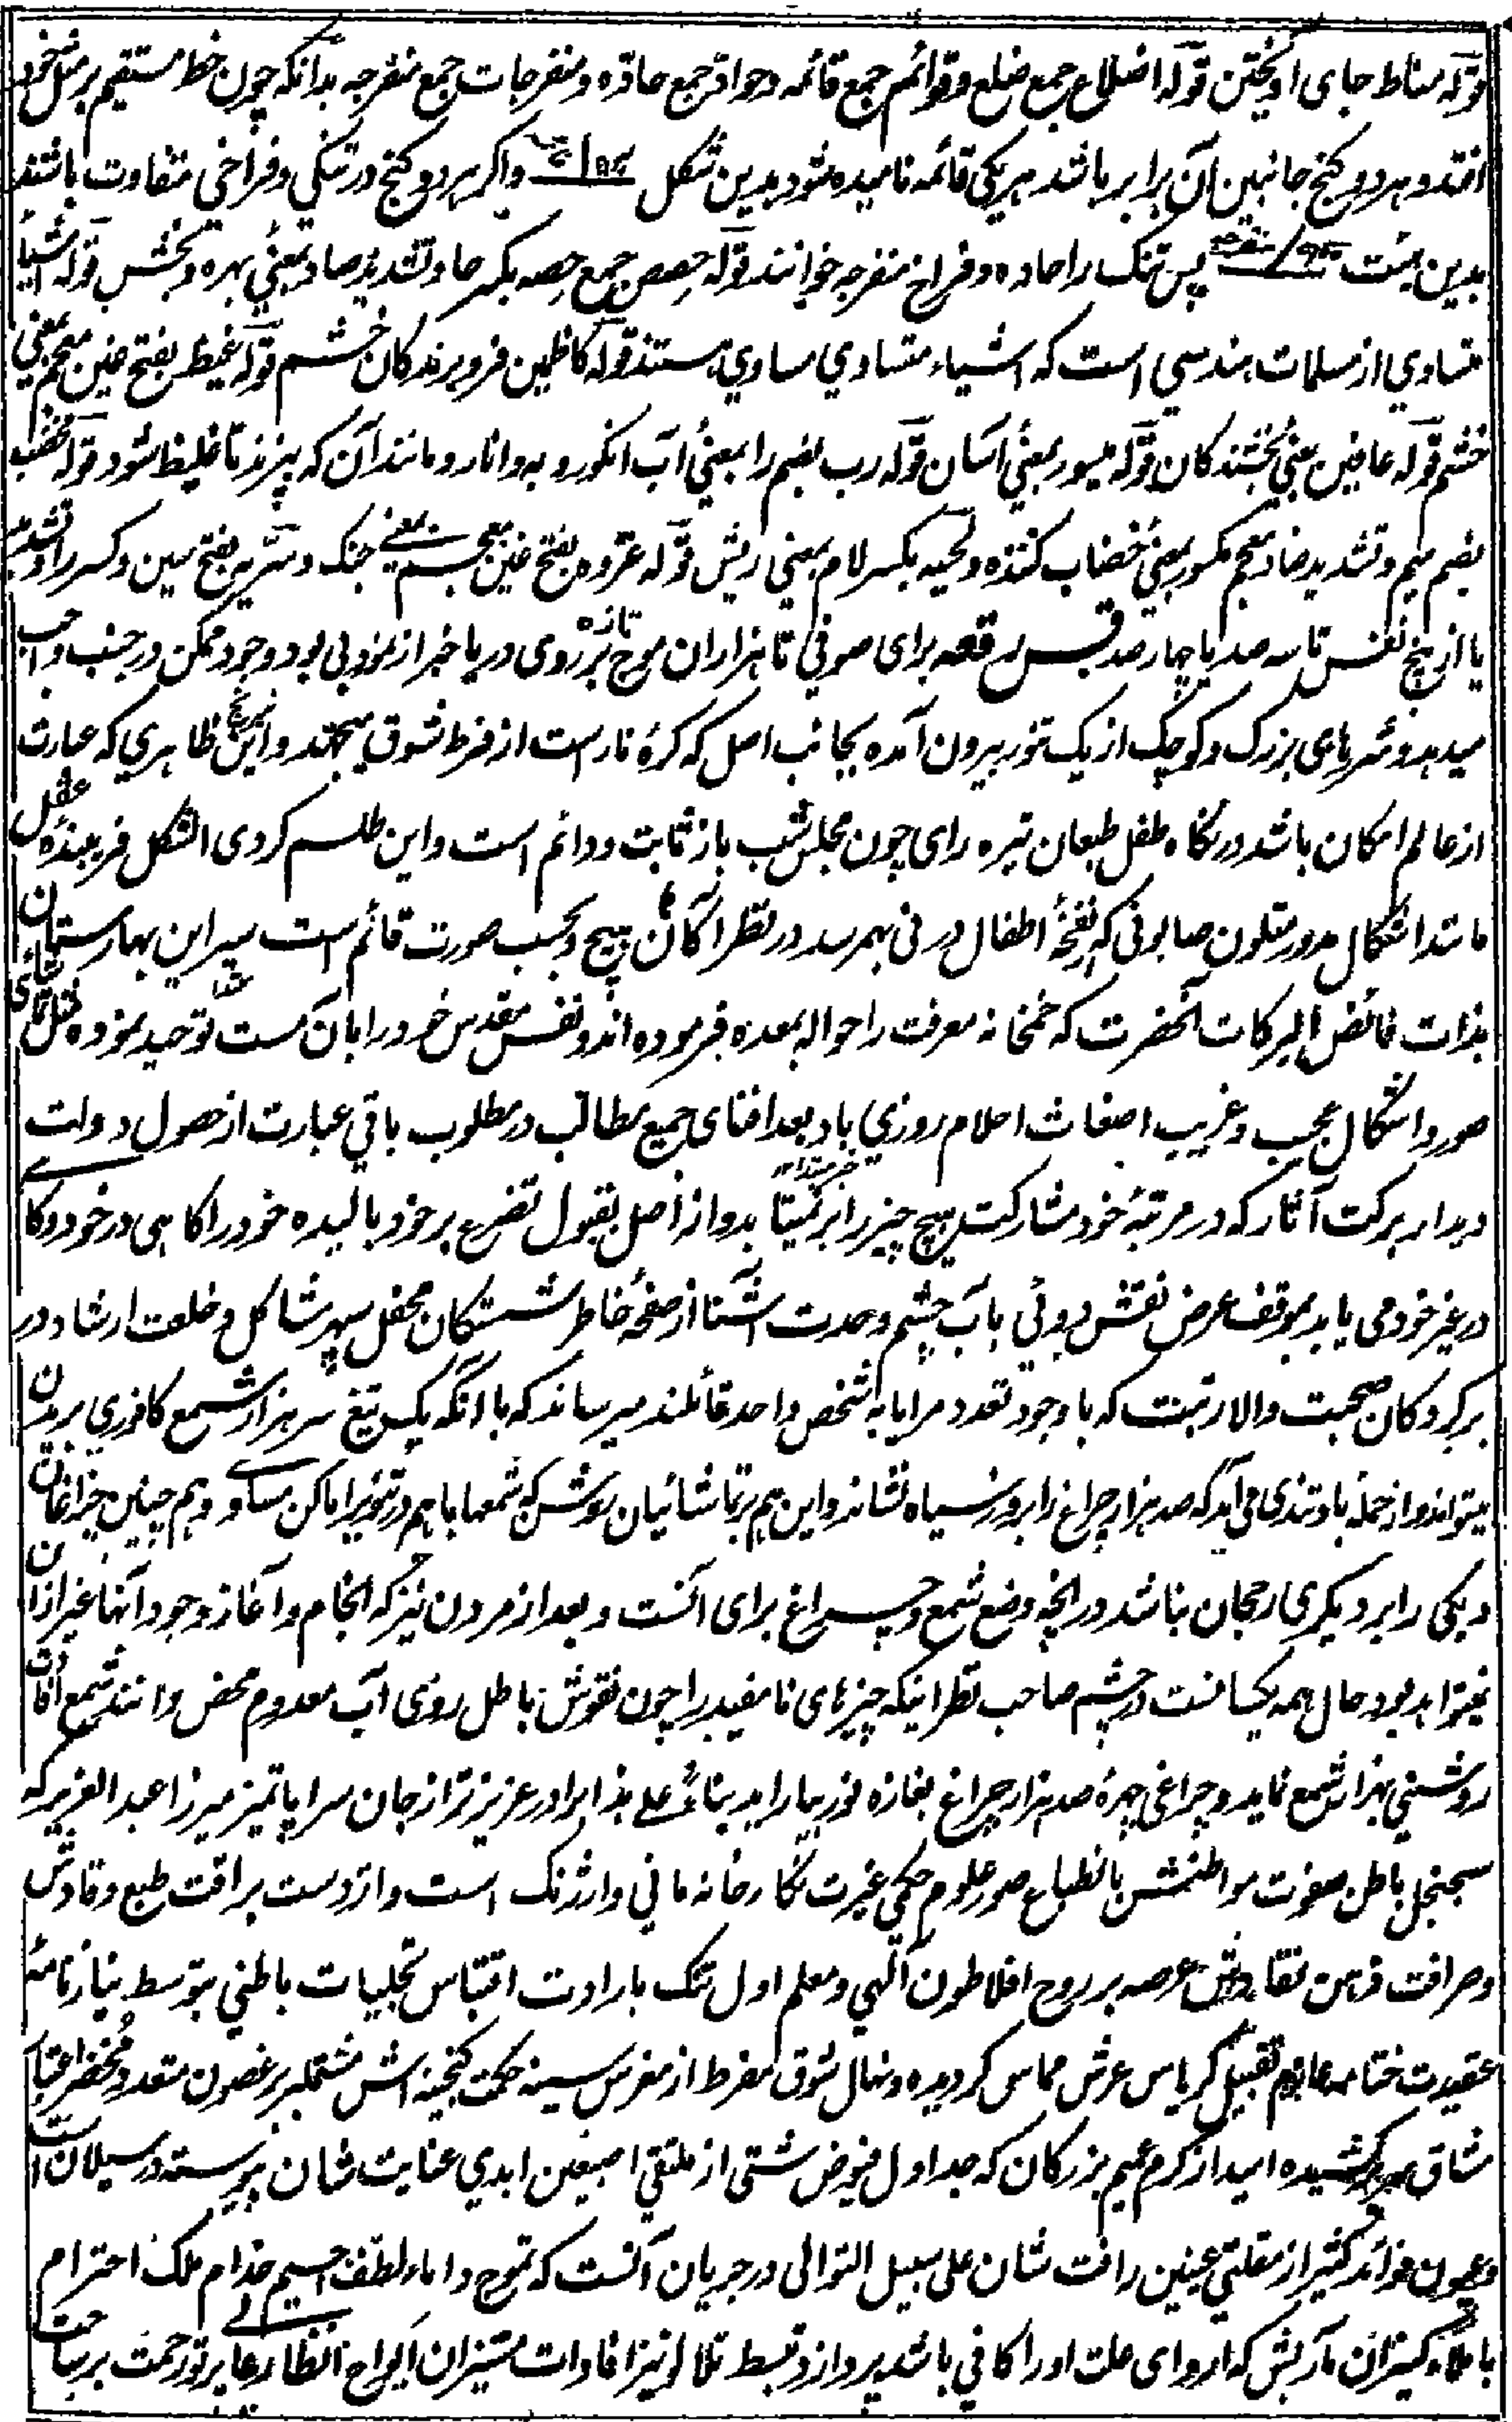 قوله مناط جای اویختن قوله اضلاع جمع ضلع و قوائم جمع قائمه و حواد جمع حاده و منفرجات جمع منفرجه بدانکه چون خط مستقیم بر مثل خود
افتد و هر دو کنج جانبین آن برابر باشد هر یکی قائمه نامیده شود بدین شکل واکر هر دو کنج در تنکی و فراخی متفاوت باشند
بدین هیئت پس تنک را حاده و فراخ منفرجه خوانند قوله حصص جمع حصه بکسر حا و تشدید صاد بمعنی بهره و بخش قوله اشیاء
متساوي از مسلمات هندسي است که اشیاء متساوي مساوي هستند قوله کاظمین فرو برندکان خشم قوله غیظ بفتح غین معجم بمعنی
خشم قوله عافین بمعنی بخشندکان قوله میسور بمعنی آسان قوله رب بضم را بمعنی آب انکور و به و انار و مانند آن که بپزند تا غلیظ شود قوله مخضب
بضم میم و تشدید ضاد معجم مکسور بمعنی خضاب کننده و لحیه بکسر لام بمعنی ریش قوله غزوه بفتح غین معجم بمعنے جنک و سریه بفتح سین و کسر را و تشدید
یا از پنج نفس تا سه صد یا چهار صد قوله رقعه برای صوفی تا هزاران موج تازه بر روی دریا خبر از نمود بی بود وجود ممکن در جنب واجب
میدهد و شررهای بزرک و کوچک از یک تنور بیرون آمده بجانب اصل که کرهٔ نار است از فرط شوق میجهد و این ظاهري که عبارت
از عالم امکان باشد در نکاه طفل طبعان تیره رای چون مجلس شب باز ثابت و دائم است و این طلسم کردی الشکل فریبندهٔ عقل
مانند اشکال مدور متلون صابونی که بنفخهٔ اطفال در نی بهمرسد در نظر آکاهان هیچ و بحسب صورت قائم است سیر این بهارستان
بذات فائض البرکات آنحضرت که خمخانه معرفت را حواله بمعده فرموده اند و نفس مقدس خود را بان مست توحید نموده
صور و اشکال عجیب و غریب اضغاث احلام روزي باد بعد افنای جمیع مطالب در مطلوب باقي عبارت از حصول دولت
دیدار برکت آثار که در مرتبهٔ خود مشارکت هیچ چیز را بر نمیتابد و از اصل بقول تضرع بر خود بالیده خود را کاهی در خود و کاهے
در غیر خود می یابد بموقف عرض نقش دوئی بآب چشم وحدت آشنا از صفحهٔ خاطر شستکان محفل سپهر شاکل و خلعت ارشاد در
بر کردکان صحبت والا رتبت که با وجود تعدد مرایا به شخص واحد قائلند میرساند که با آنکه یک تیغ سر هزار شمع کافوری بریدن
میتواند و از حملهٔ باد تندی می آید که صد هزار چراغ را بروز سیاه نشاند و این هم بر تماشائیان روشن که شمعها باهم در تنویر اماکن مساوے و هم چنین چراغان
و یکی را بر دیکری رجحان نباشد در آنچه وضع شمع و چراغ برای آنست و بعد از مردن نیز که انجام و آغاز وجود آنها غیر ازان
نخواهد بود حال همه یکسانست در چشم صاحب نظر اینکه چیزهای نامفید را چون نقوش باطل روی آب معدوم محض دانند شمع
روشني هزار شمع نماید و چراغی چهرهٔ صد هزار چراغ بغازه نور بیاراید بناءً علے هذا برادر عزیزتر از جان سراپا تمیز میرزا عبد العزیز که
سجنجل باطن صفوت مواطنش بانطباع صور علوم حکمی غیرت نکارخانه مانی و ارژنک است و از دست براقت طبع وقادش
و صرافت ذهن نقادش عرصه بر روح افلاطون الهي و معلم اول تنک بارادت اقتباس تجلیات باطني بتوسط نیازنامهٔ
عقیدت ختامه عازم تقبیل کریاس عرش مماس کردیده و نهال شوق مفرط از مغرس سینه حکمت کنجینه اش مشتمل بر غصون متعدد و مخضر
شاق کشیده امید از کرم عمیم بزرکان که جداول فیوض شتی از ملتقي اصبعین ابدي عنایت شان پیوسته در سیلان است
و عیون فوائد کثیر از مقلتي عینین رافت نشان علی سبیل التوالی در جریان آنست که تموج داماء لطف جسیم خدام ملک احترام
باشد بپردازد و بسط افادات مستنیران الواح انظار رعایر تو رحمت بر ساحت